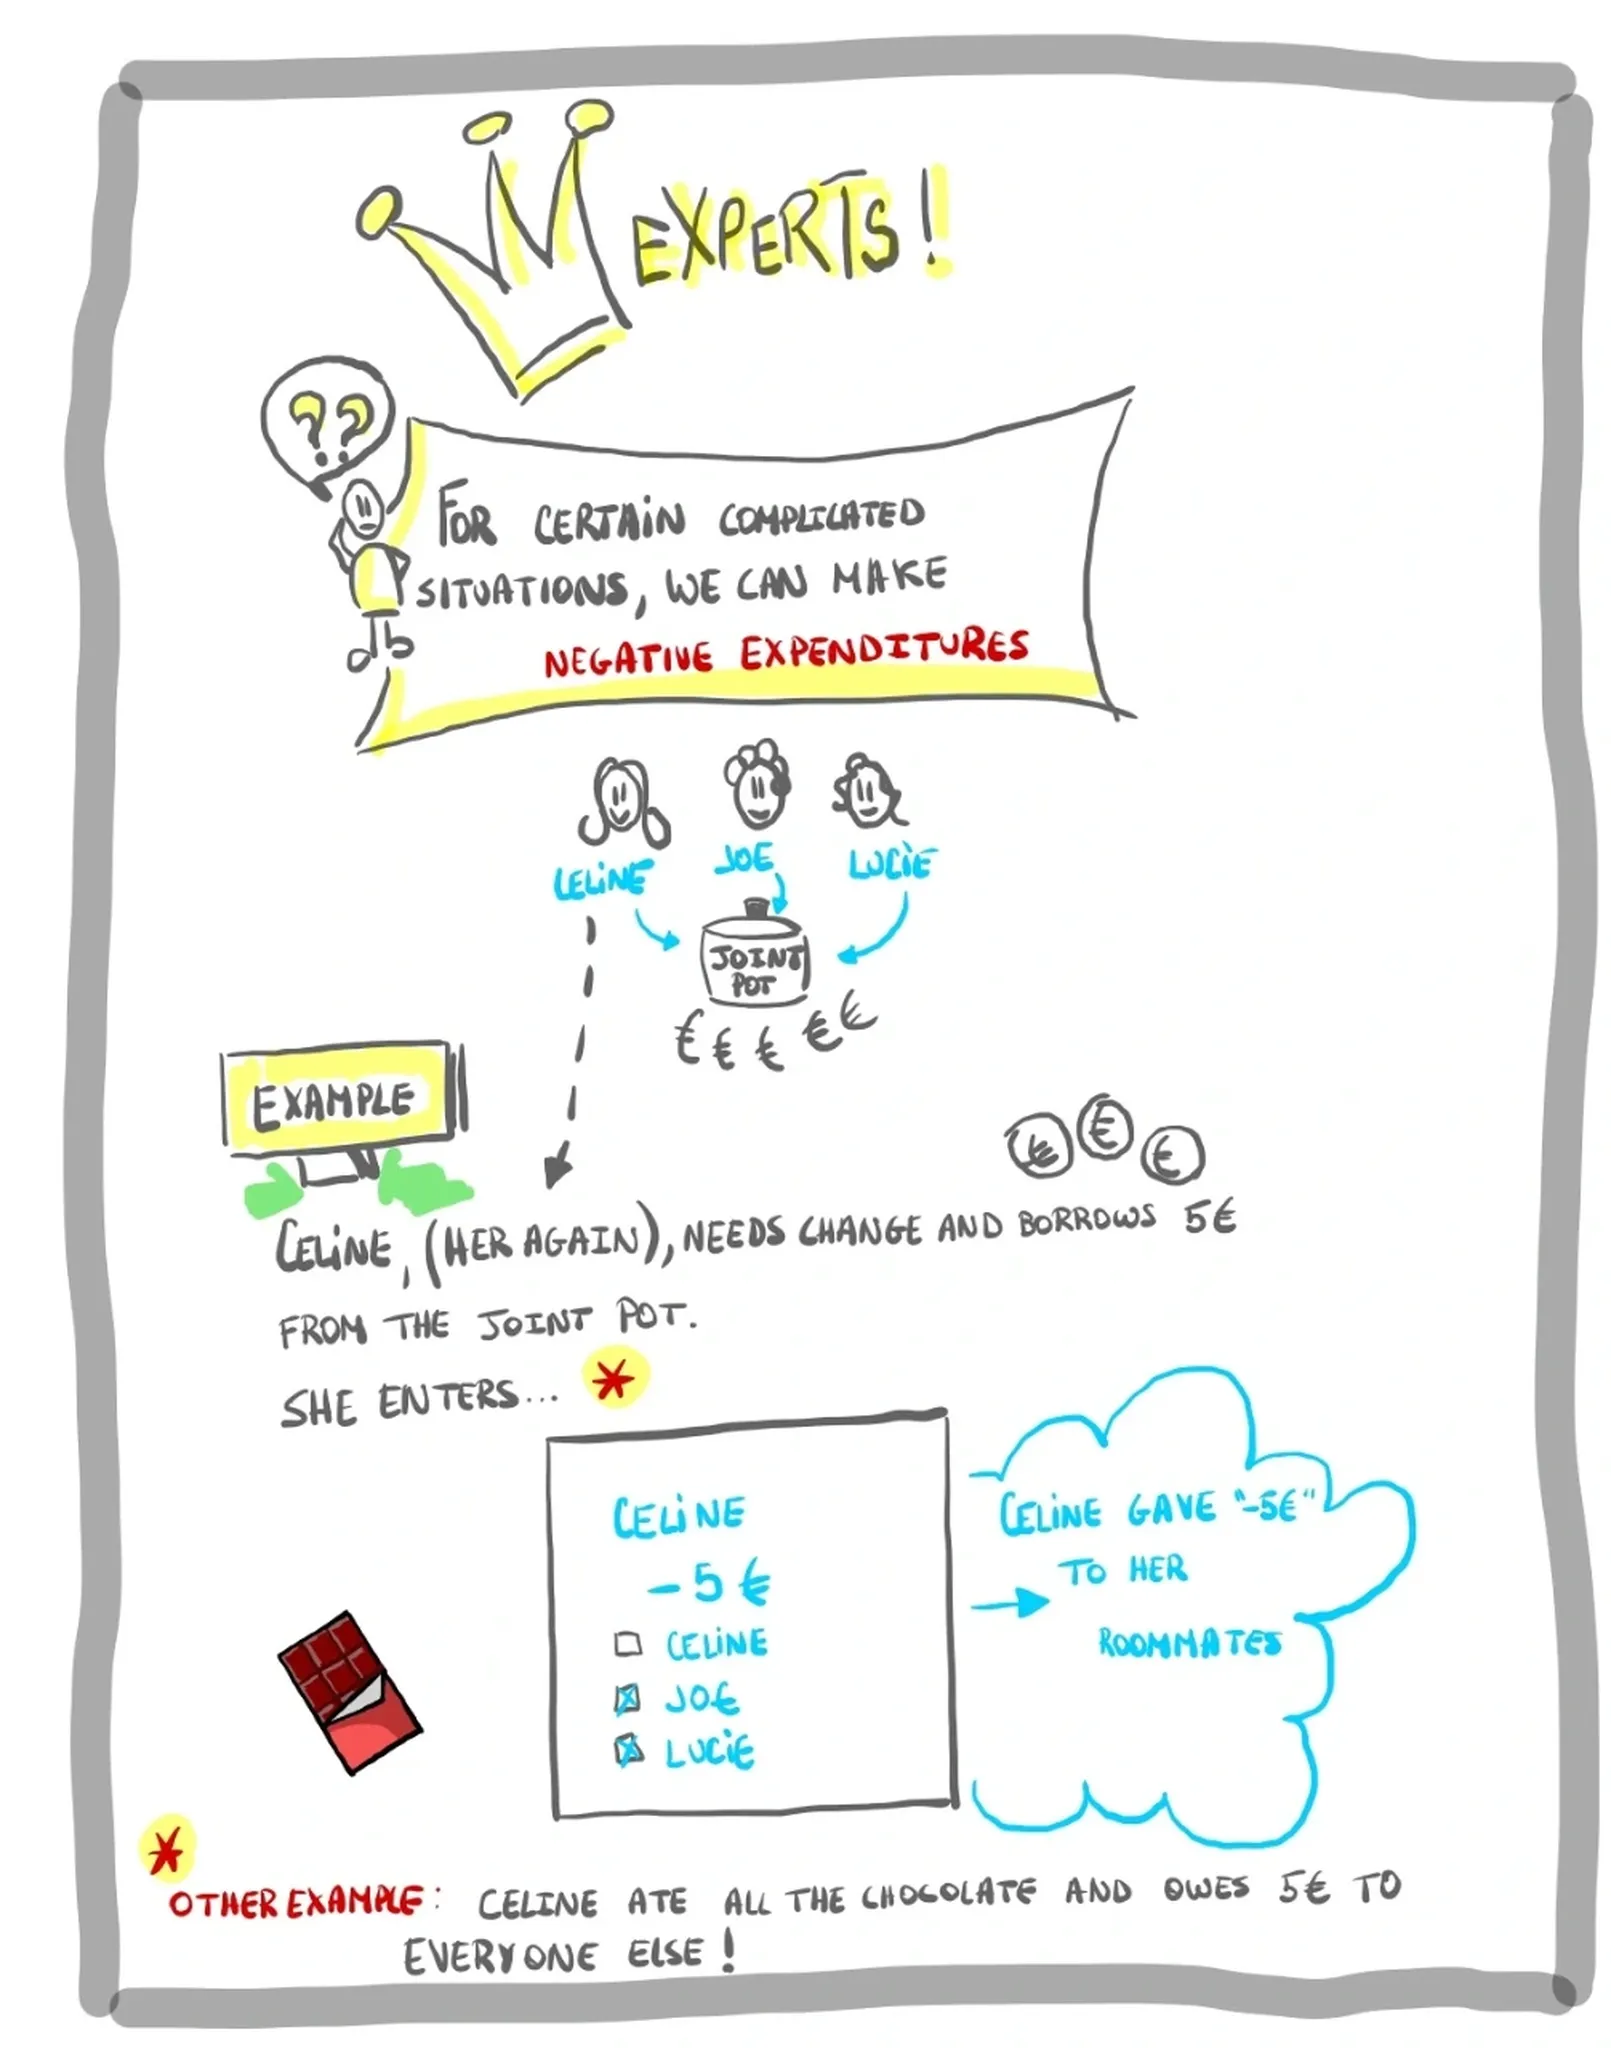 EXPERTS!
? ?
FOR CERTAIN COMPLICATED
SITUATIONS, WE CAN MAKE
NEGATIVE EXPENDITURES
CELINE
JOE
LUCIE
JOINT
POT
€ € € € €
EXAMPLE
€ € €
CELINE, (HER AGAIN), NEEDS CHANGE AND BORROWS 5€
FROM THE JOINT POT.
SHE ENTERS... *
CELINE
-5 €
☐ CELINE
☒ JO€
☒ LUCIE
CELINE GAVE "-5€"
TO HER
ROOMMATES
*
OTHER EXAMPLE: CELINE ATE ALL THE CHOCOLATE AND OWES 5€ TO
EVERYONE ELSE!